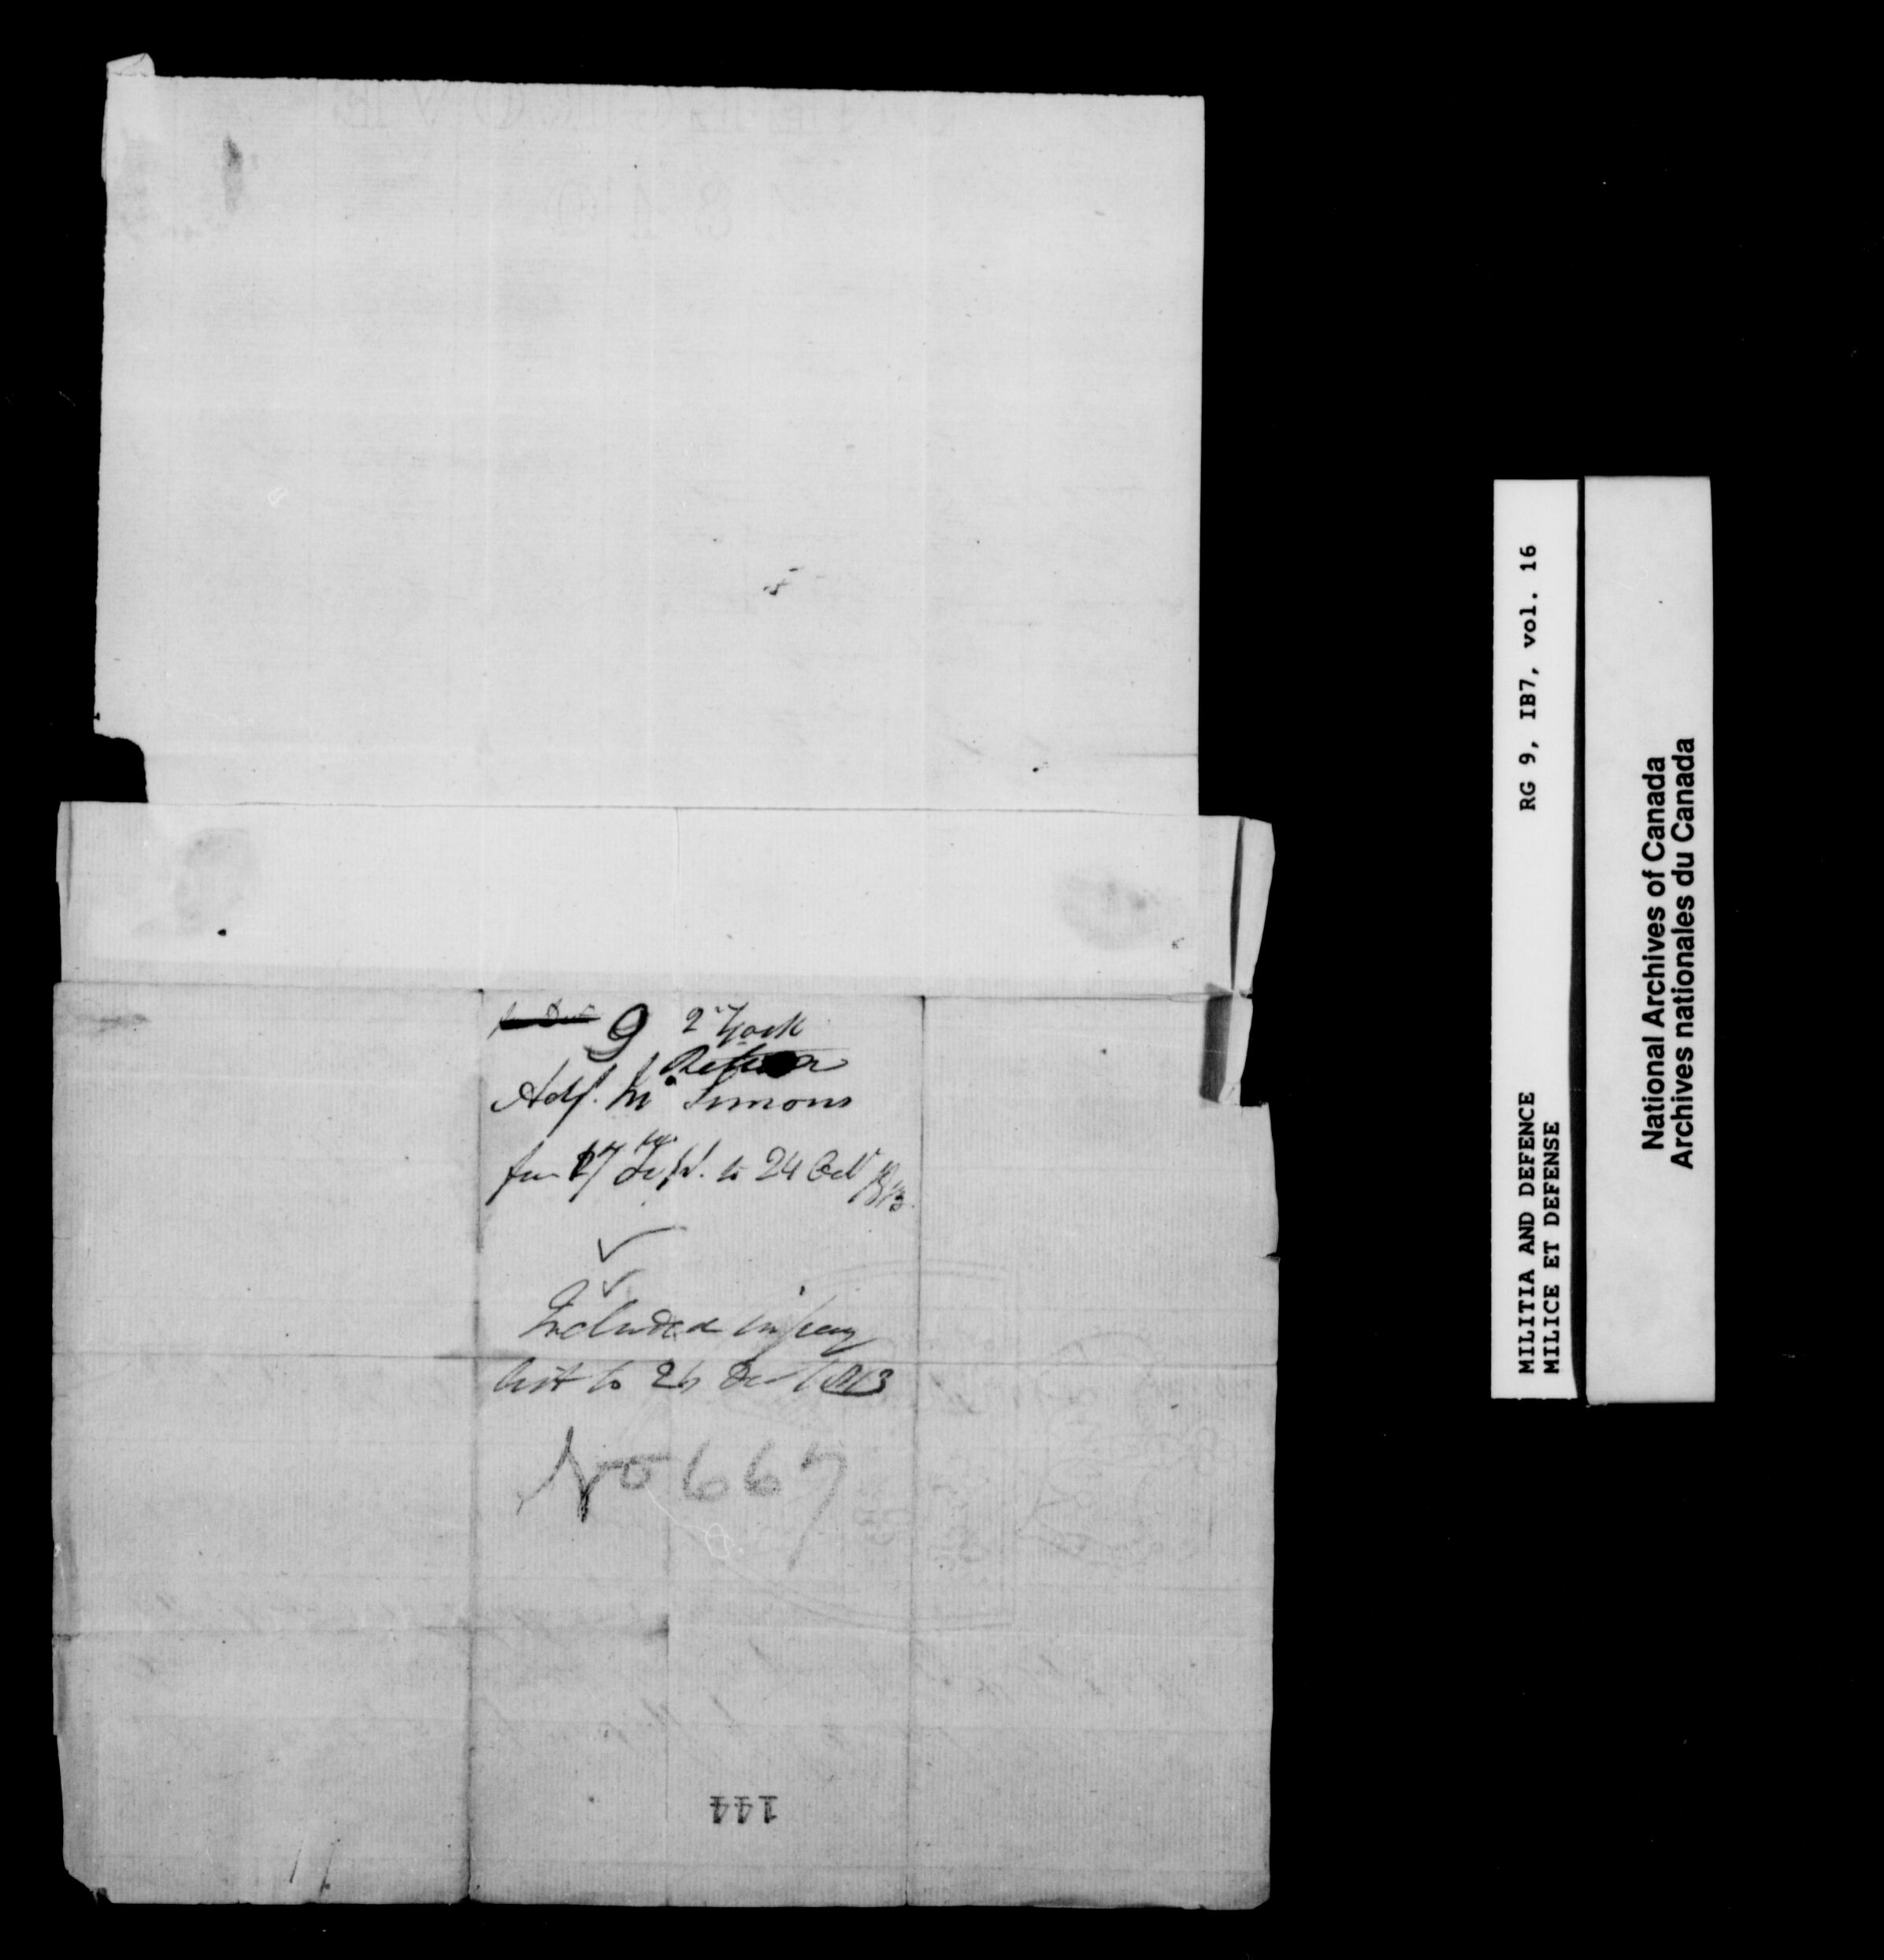 9 2d York
Adjt. Mc Simons
from 27 Sept. to 24 Octr 1813.
Included in pay
list to 26 Dec 1813
No 667
144
MILITIA AND DEFENCE RG 9, IB7, vol. 16
MILICE ET DEFENSE
National Archives of Canada
Archives nationales du Canada